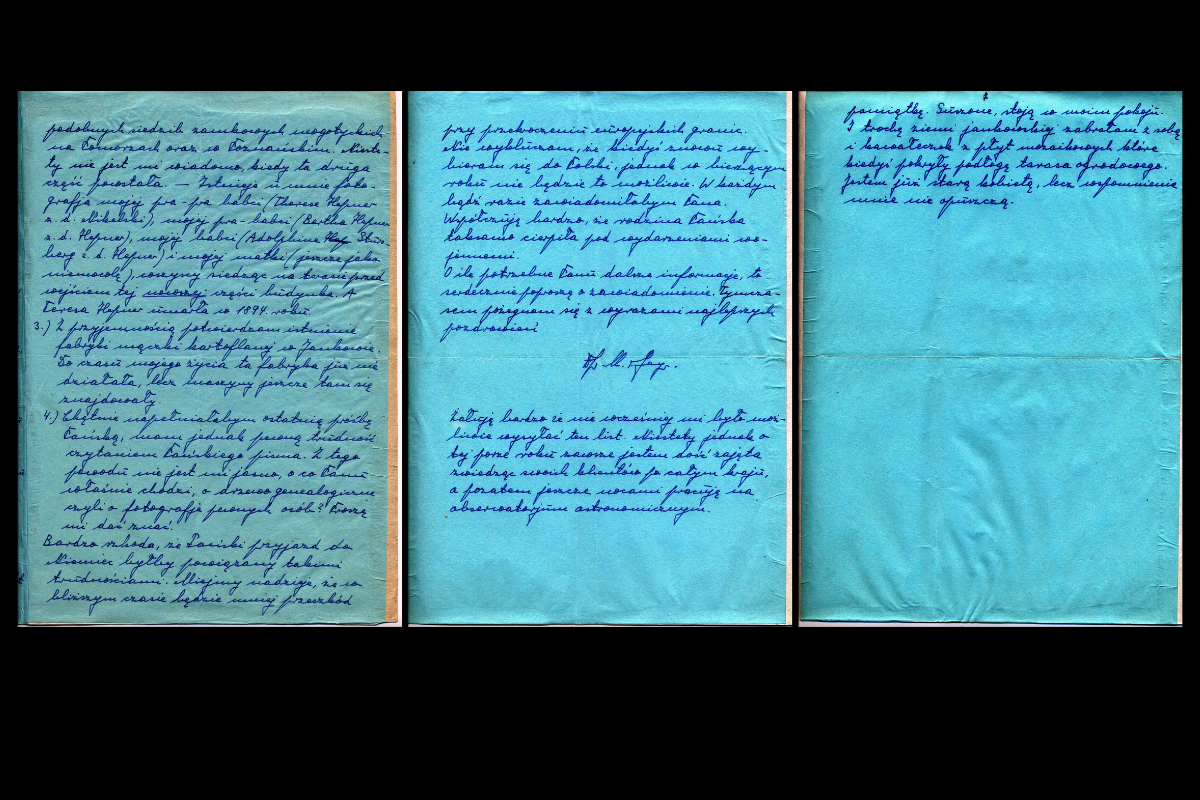 podobnych siedzib zamkowych neogotyckich
na Pomorzach oraz w Poznańskim. Nieste-
ty nie jest mi wiadomo, kiedy ta druga
część powstała. — Istnieje u mnie foto-
grafja mojej pra-pra babci (Therese Hepner
z.d. Nikelski), mojej pra-babci (Bertha Hepner
z.d. Hepner), mojej babci (Adolphine
berg z.d. Hepner) i mojej matki (jeszcze jako
niemowlę), wszyscy siedząc na terenie przed
wejściem tej nowszej części budynku. A
Teresa Hepner umarła w 1894. roku.
3.) Z przyjemnością potwierdzam istnienie
fabryki mączki kartoflanej w Jankowie.
Do czasu mojego życia ta fabryka już nie
działała, lecz maszyny jeszcze tam się
znajdowały.
4.) Chętnie napełniałabym ostatnią prośbę
Pańską, mam jednak pewną trudność
czytaniem Pańskiego pisma. Z tego
powodu nie jest mi jasno, o co Panu
właśnie chodzi, o drzewo genealogiczne
czyli o fotografje pewnych osób? Proszę
mi dać znać.
Bardzo szkoda, że Pański przyjazd do
Niemiec byłby powiązany takimi
trudnościami. Miejmy nadzieję, że w
bliższym czasie będzie mniej przeszkód
przy przekroczeniu europejskich granic.
Nie wykluczam, że kiedyś znowu wy-
bieram się do Polski, jednak w bieżącym
roku nie będzie to możliwie. W każdym
bądź razie zawiadomiłabym Pana.
Współczuję bardzo, że rodzina Pańska
taksamo cierpiła pod wydarzeniami wo-
jennemi.
O ile potrzebne Panu dalsze informacje, to
serdecznie poproszę o zawiadomienie. Tymcza-
sem pożegnam się z wyrazami najlepszych
pozdrowień
M.
Żałuję bardzo że nie wcześniej mi było moż-
liwie wysyłać ten list. Niestety jednak o
tej porze roku zawsze jestem dość zajęta
zwiedząc swoich klientów po całym kraju,
a pozatem jeszcze nocami pracuję na
observatorjum astronomicznym.
pamiątkę. Suszone, stoją w moim pokoju.
I trochę ziemi jankowskiej zabrałam z sobą
i kawałeczek z płyt mozaikowych które
kiedyś pokryły podłogę tarasa ogrodowego.
Jestem już starą kobietą, lecz wspomnienia
mnie nie opuszczą.